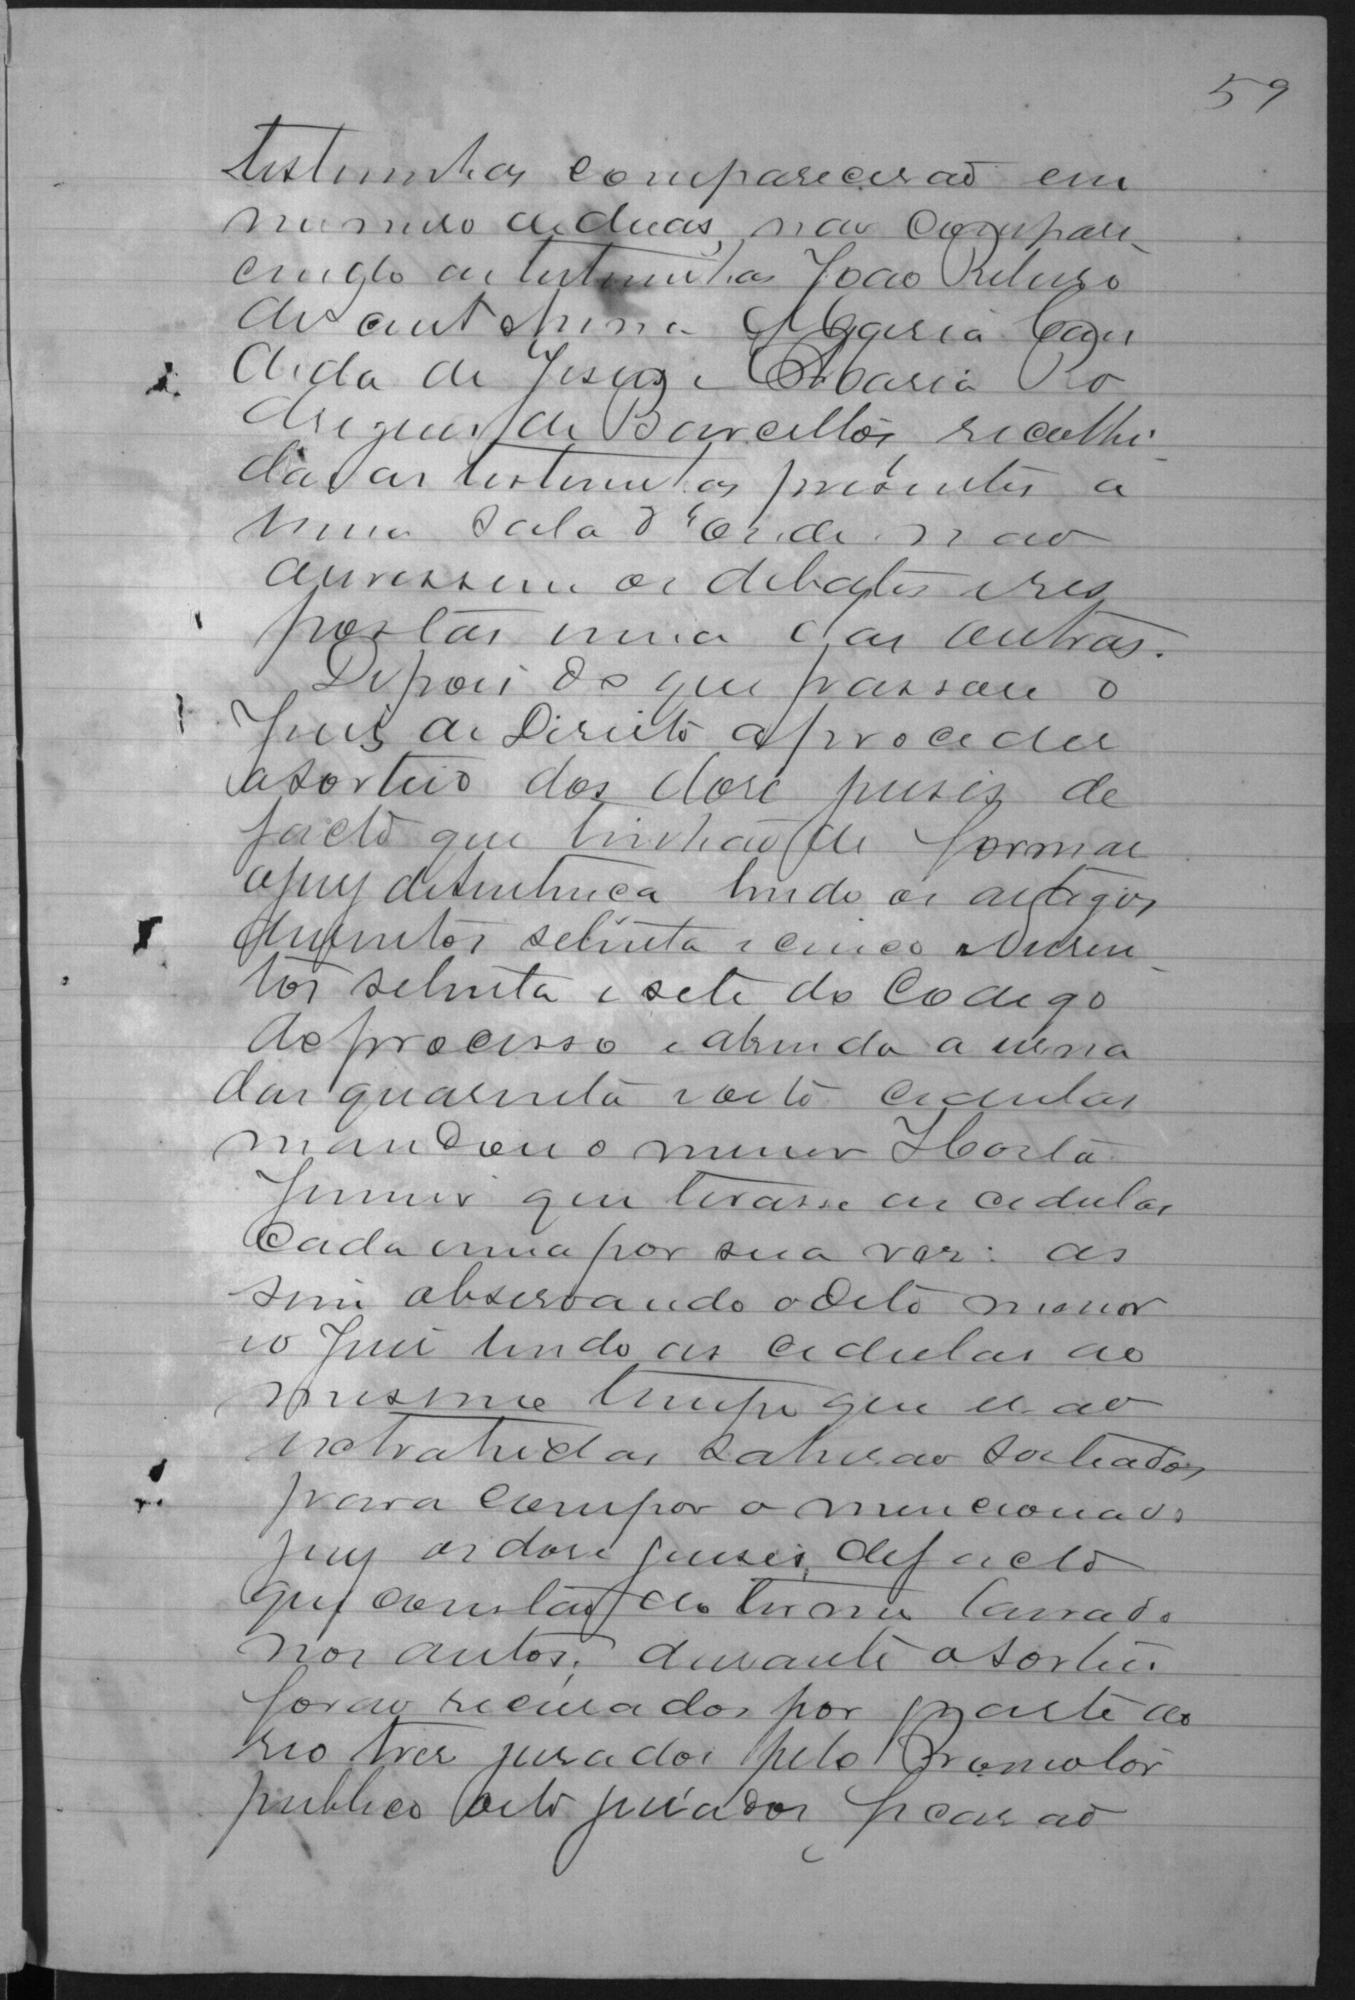 59
testemunhas comparecerão em
numero de duas, não compare-
cendo as testemunhas João
de Maria Can
dida de Jesus e Maria Ro
drigues de Barcellos, recolhi-
das as testemunhas presentes a
uma sala d'onde não
ouvissem os debates e res
postas uma das outras.
Depois do que passou o
Juis de Direito a proceder
o sorteio dos dose juises de
facto que tinhão de formar
o jury de sentença lendo os artigos
dusentos setenta e cinco e dusen-
tos setenta e sete do Codego
do processo e abrindo a urna
das quarenta e oito cedulas
mandou o menor Horta
Junior que tirasse as cedulas
cada uma por sua ves: as
sim observando o dito menor
e o Juis lendo as cedulas ao
mesmo tempo que erão
extrahidas sahirão sorteados
para compor o mencionado
jury os dose juises de facto
que constão do termo lavrado
nos autos; durante o sorteio
forão recusados por parte do
reo tres jurados pelo Promotor
publico oito jurados, ficarão